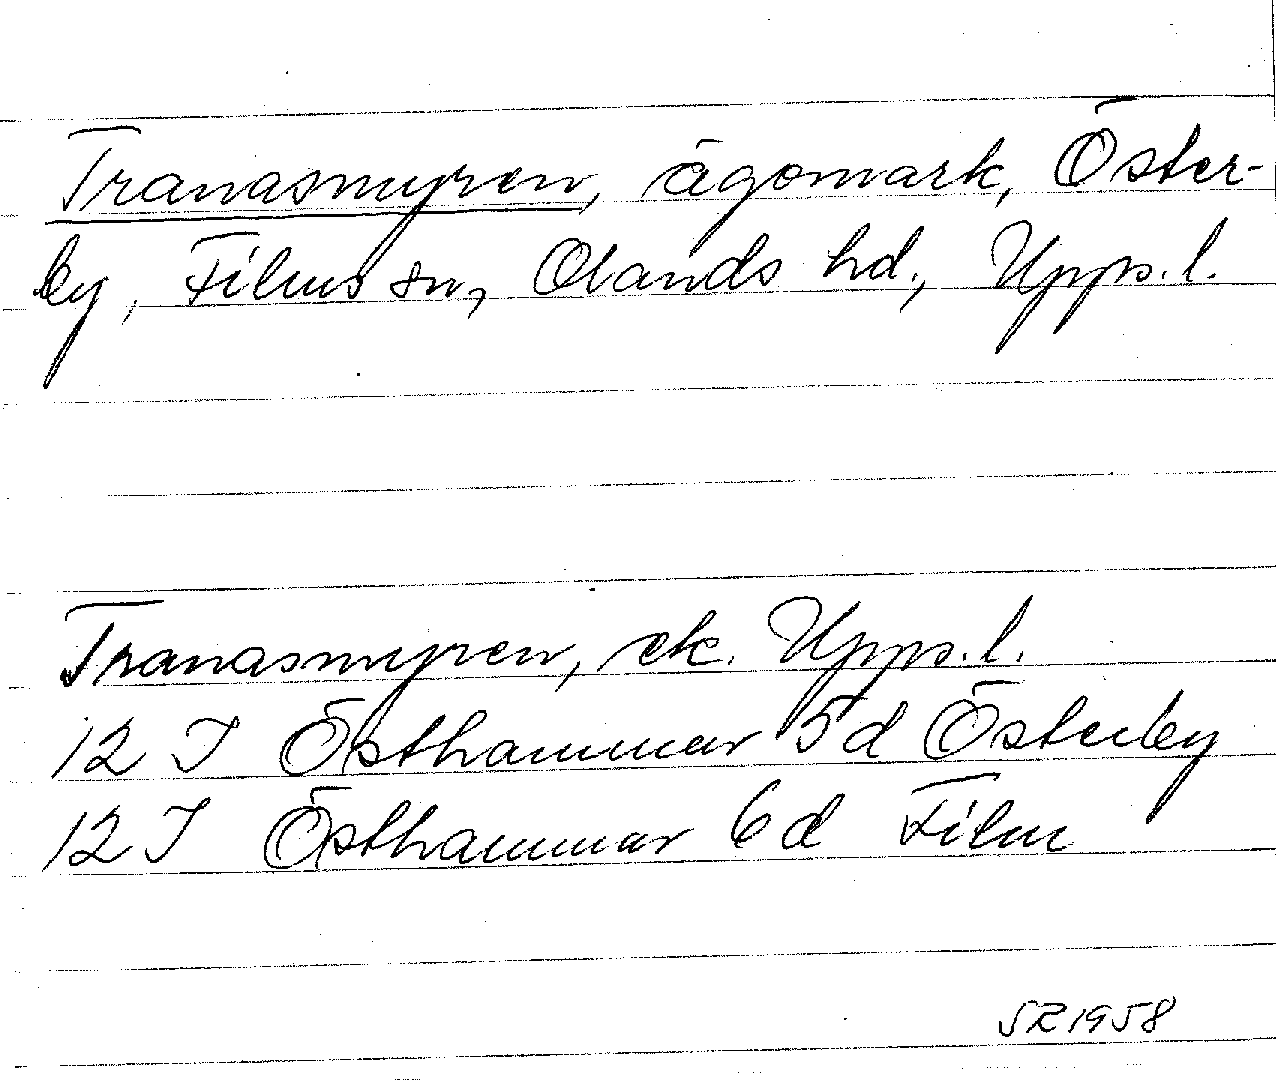 Tranasmyren, ägomark, Öster-
by, Films sn, Olands hd, Upps. l.
Tranasmyren, ek. Upps. l.
12 I Östhammar 5d Österby
12 I Östhammar 6d Film
SR 1958